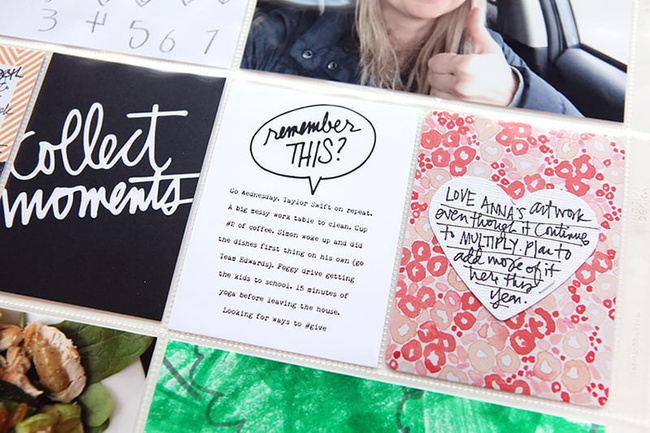 3 4 5 6 7
collect
moments
remember
THIS?
Go Wednesday. Taylor Swift on repeat.
A big messy work table to clean. Cup
#2 of coffee. Simon woke up and did
the dishes first thing on his own (go
Team Edwards). Foggy drive getting
the kids to school. 15 minutes of
yoga before leaving the house.
Looking for ways to #give
LOVE ANNA'S artwork
even though it continues
to MULTIPLY. Plan to
add more of it
here this
year.